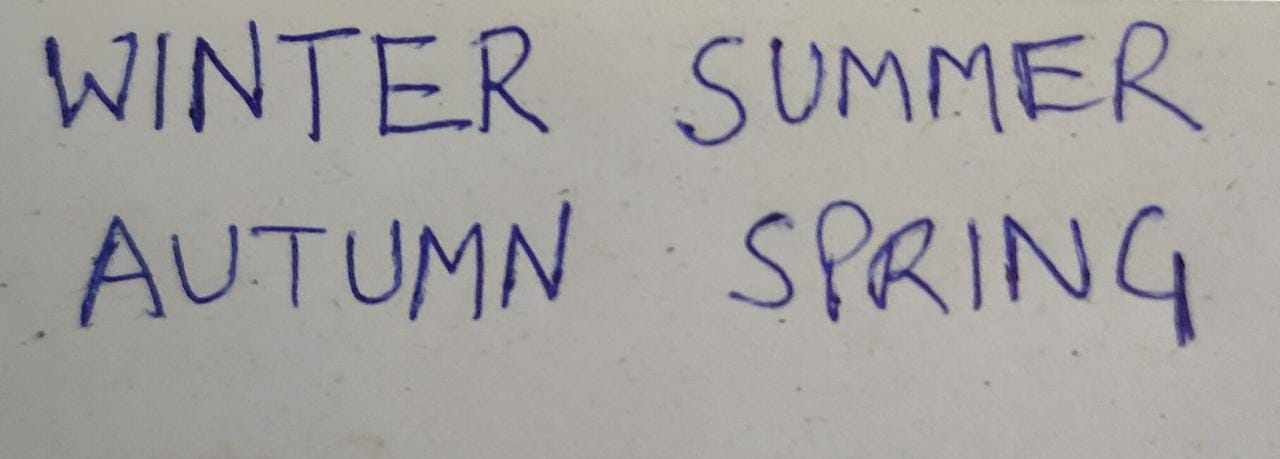 WINTER SUMMER
AUTUMN SPRING